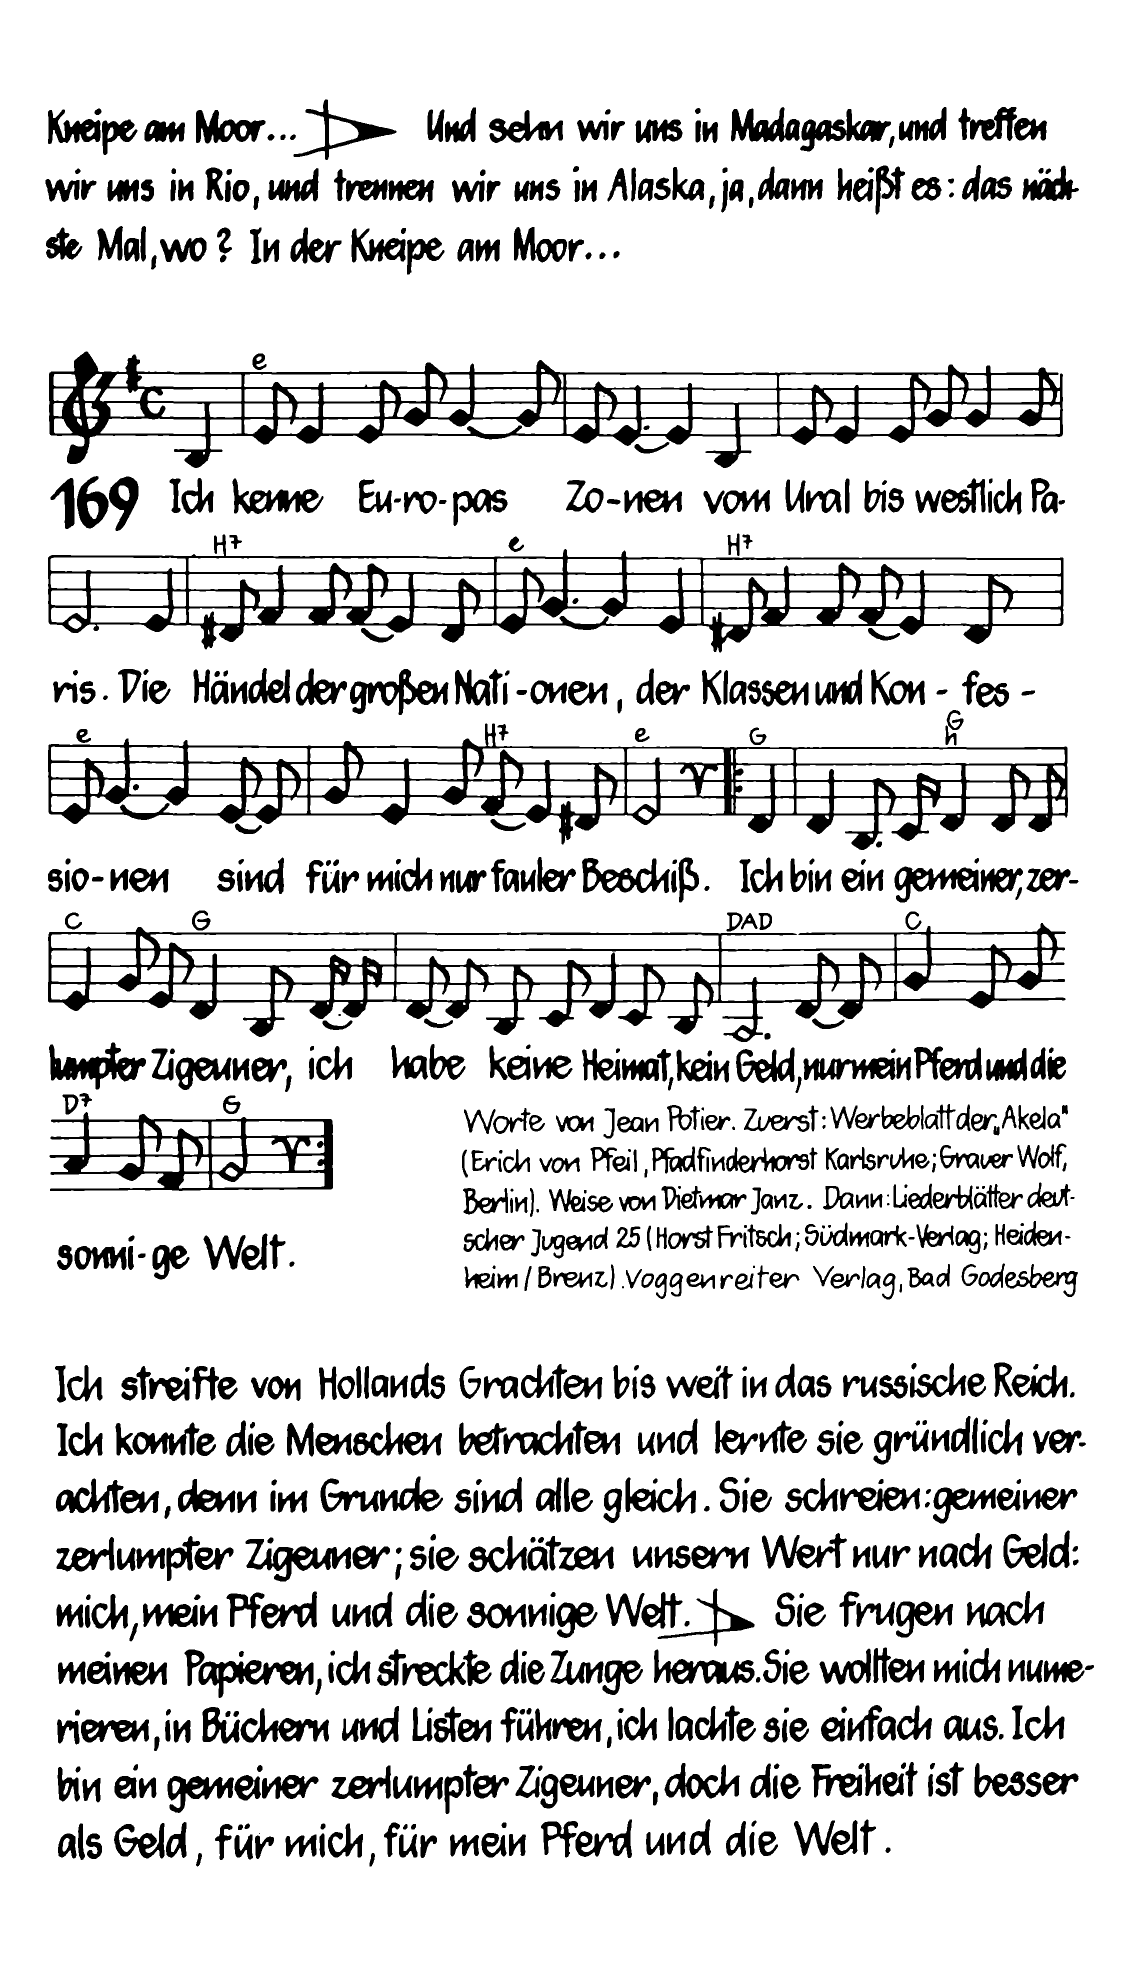 Kneipe am Moor... Und sehn wir uns in Madagaskar, und treffen
wir uns in Rio, und trennen wir uns in Alaska, ja, dann heißt es: das näch-
ste Mal, wo? In der Kneipe am Moor...
e
169 Ich kenne Eu-ro-pas Zo-nen vom Ural bis westlich Pa-
H7 e H7
ris. Die Händel der großen Nati-onen, der Klassen und Kon-fes-
e H7 e G G h
sio-nen sind für mich nur fauler Beschiß. Ich bin ein gemeiner, zer-
C G DAD C
lumpter Zigeuner, ich habe keine Heimat, kein Geld, nur mein Pferd und die
D7 G
sonni-ge Welt.
Worte von Jean Potier. Zuerst: Werbeblatt der „Akela"
(Erich von Pfeil, Pfadfinderhorst Karlsruhe; Grauer Wolf,
Berlin). Weise von Dietmar Janz. Dann: Liederblätter deut-
scher Jugend 25 (Horst Fritsch; Südmark-Verlag; Heiden-
heim / Brenz). Voggenreiter Verlag, Bad Godesberg
Ich streifte von Hollands Grachten bis weit in das russische Reich.
Ich konnte die Menschen betrachten und lernte sie gründlich ver-
achten, denn im Grunde sind alle gleich. Sie schreien: gemeiner
zerlumpter Zigeuner; sie schätzen unsern Wert nur nach Geld:
mich, mein Pferd und die sonnige Welt. Sie frugen nach
meinen Papieren, ich streckte die Zunge heraus. Sie wollten mich nume-
rieren, in Büchern und Listen führen, ich lachte sie einfach aus. Ich
bin ein gemeiner zerlumpter Zigeuner, doch die Freiheit ist besser
als Geld, für mich, für mein Pferd und die Welt.